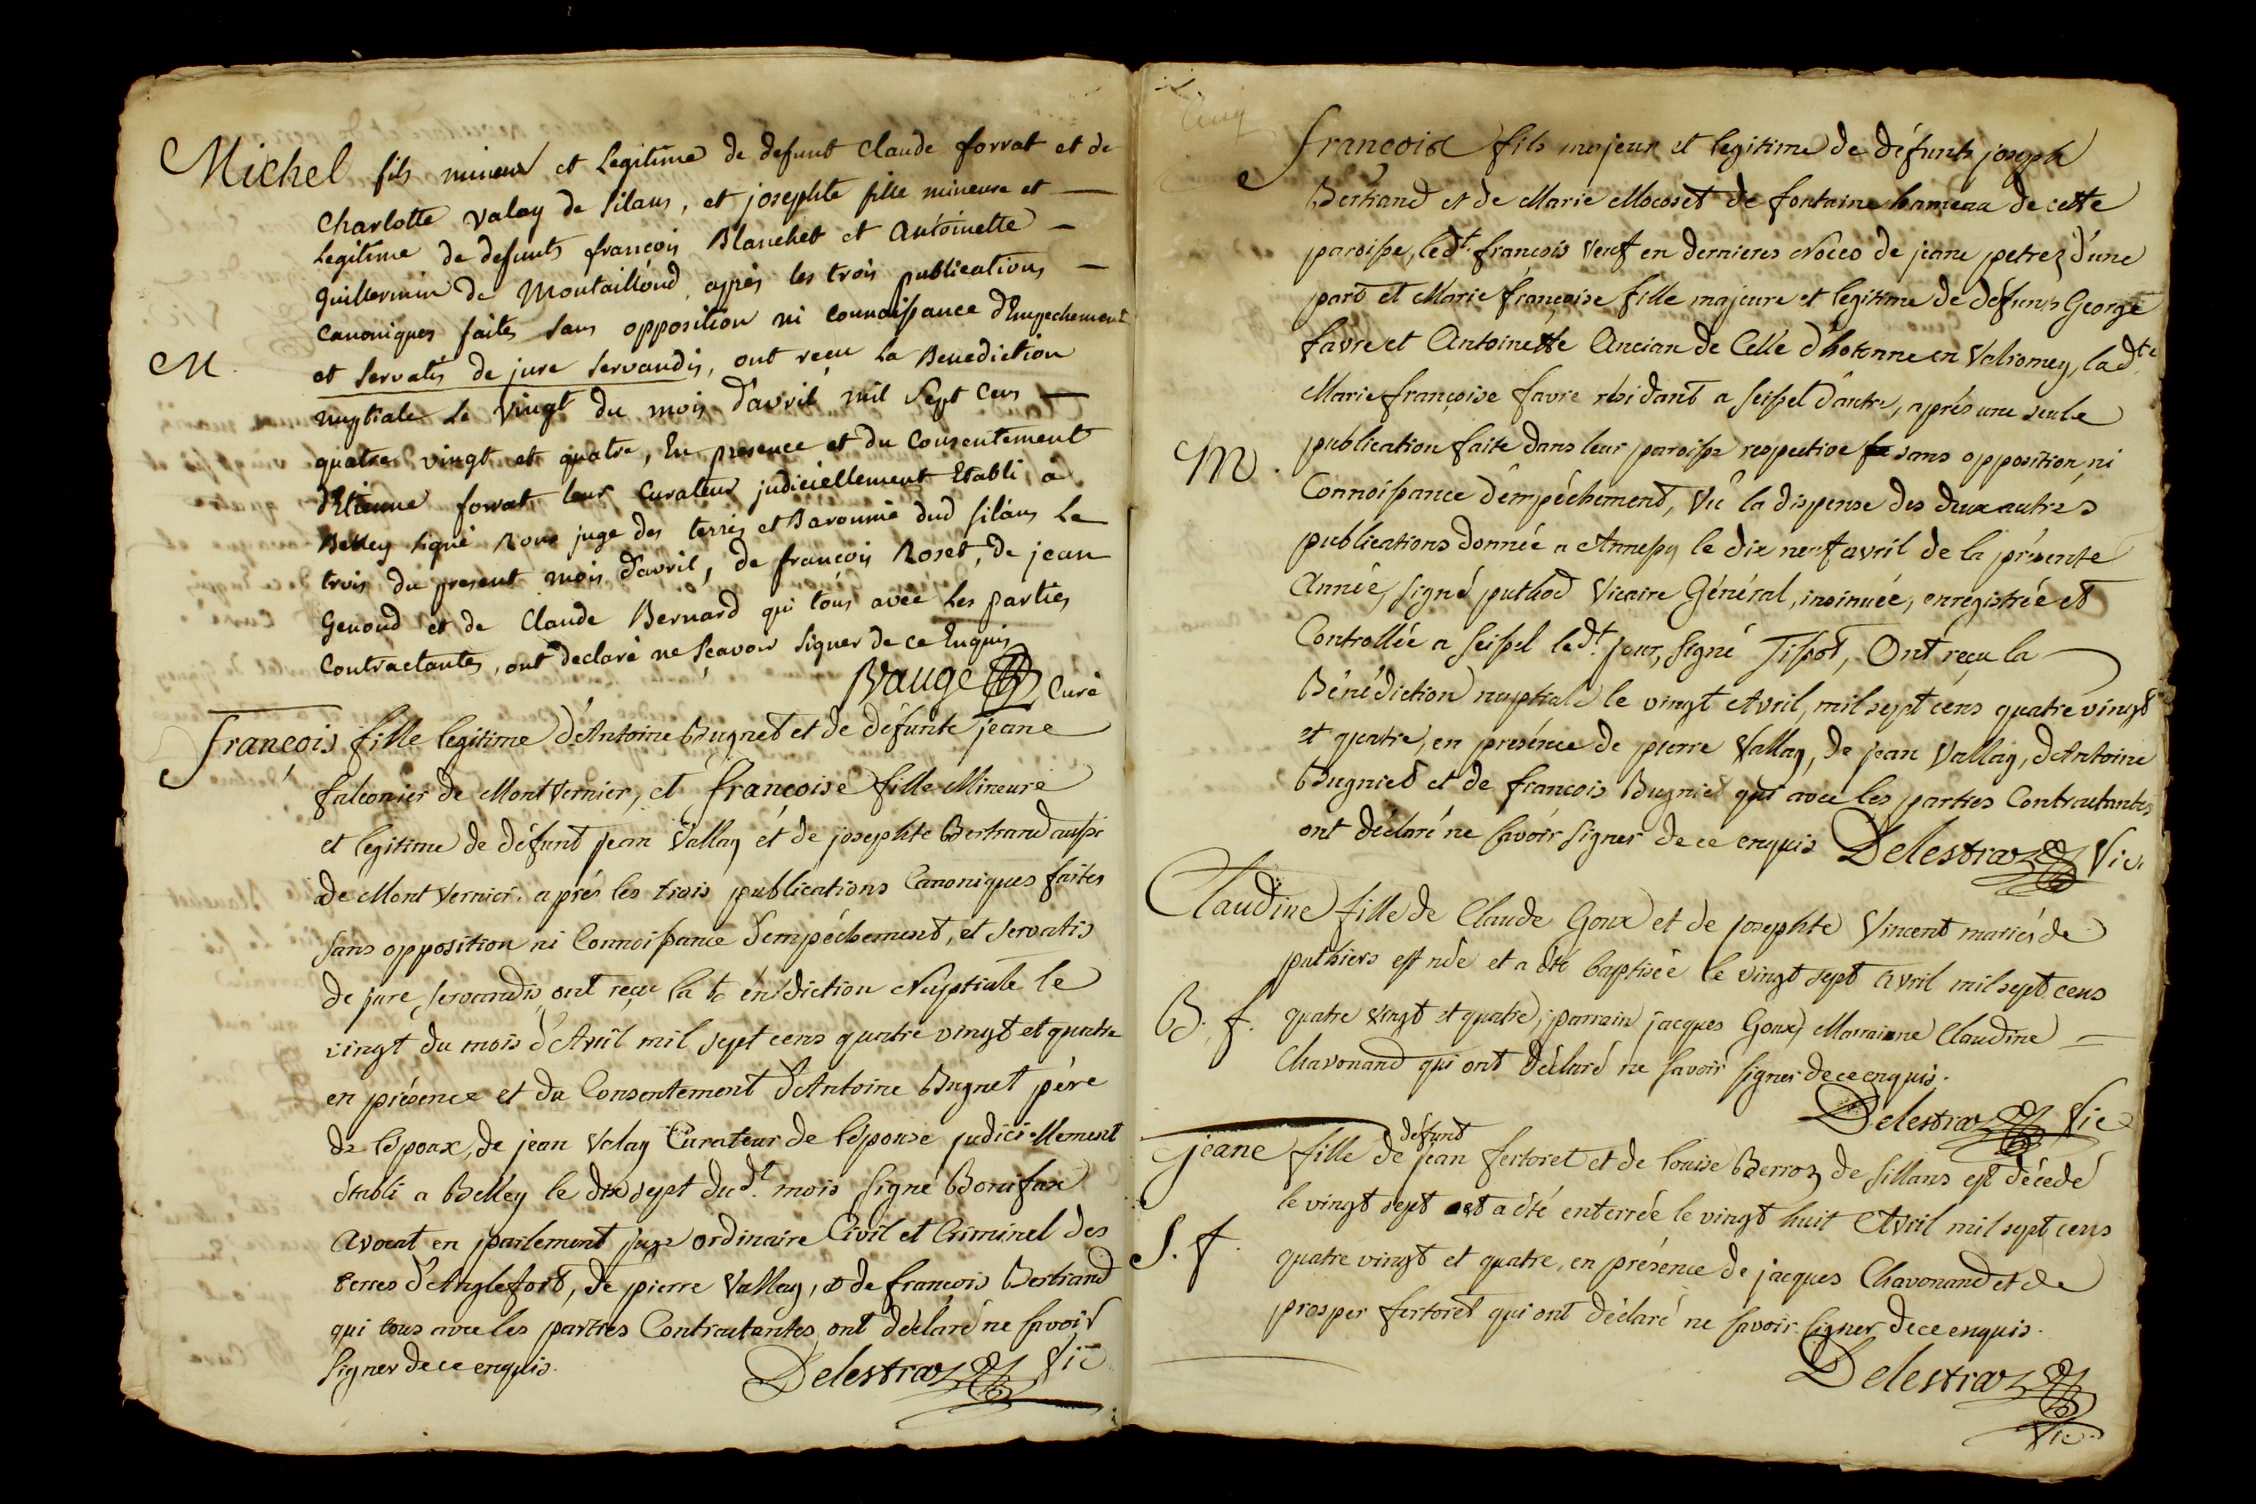 Michel fils mineur et Legitime de defunt Claude forrat et de
Charlotte valay de silans, et josephte fille mineure et
Legitime de defunts françois Blanchet et Antoinette
guillermin de Montaillond, après les trois publications
canoniques faites sans opposition ni connoissance d'Empechement
M.
et servatis de jure servandis, ont recu La Benediction
nuptiale Le vingt du mois d'avril mil sept cens
quatre vingt et quatre, En presence et du Consentement
d'Etienne forrat leur Curateur judiciellement Etabli a
Belley signé juge des terres et Baronnie dud silans Le
trois du present mois d'avril, de françois Roset, de jean
Genoud et de Claude Bernard qui tous avec Les parties
Contractantes, ont declaré ne Scavoir signer de ce Enquis
Bauge Curé
François fille legitime d'Antoine Bugnet et de défunte jeane
falconier de Mont Vernier, et françoise fille Mineure
et legitime de défunt jean Vallay et de josephte Bertrand aussi
de Mont Vernier. après les trois publications Canoniques faites
sans opposition ni Connoissance d'empéchement, et servatis
de jure servandis ont reçu la bénédiction Nuptiale le
vingt du mois d'Avril mil sept cens quatre vingt et quatre
en présence et du Consentement d'Antoine Bugnet pére
de l'époux, de jean Valay Curateur de l'épouse judiciellement
établi a Belley le dix sept dudt. mois signé Bonifax
Avocat en parlement juge ordinaire Civil et Criminel des
terres d'Anglefort, de pierre Vallay, et de francois Bertrand
qui tous avec les parties Contractantes ont déclaré ne savoir
signer de ce enquis.
Delestraz Vic
françois fils majeur et legitime de défunts joseph
Bertrand et de Marie Mocoset de fontaine hameau de cette
paroisse, ledt. françois veuf en dernieres Noces de jeane petrez d'une
part et Marie françoise fille majeure et legitime de défunts George
favre et Antoinette Ancian de Celle d'hotonne en Valromey, la dte
Marie françoise favre résidant a seissel d'autre, après une seule
M.
publication faite dans leur paroisse respective sans opposition, ni
Connoissance d'empéchement, Vû la dispense des deux autres
publications donnée a Annessy le dix neuf avril de la présente
Année, signé puthod Vicaire Général, insinuée, enregistrée et
Controllée a seissel ledt. jour, signé Tissot, Ont reçu la
Bénédiction nuptiale le vingt Avril, mil sept cens quatre vingt
et quatre, en présence de pierre Vallay, de jean Vallay, d'Antoine
Bugniet et de françois Bugniet qui avec les parties Contractantes
ont déclaré ne savoir signer de ce enquis Delestraz Vic.
Claudine fille de Claude Goux et de josephte Vincent mariés de
puthiers est née et a été baptisée le vingt sept Avril mil sept cens
B. f.
quatre vingt et quatre, parrain jacques Goux Marraine Claudine
Chavonand qui ont déclaré ne savoir signer de ce enquis.
Delestraz Vic
défunt
jeane fille de jean fertoret et de louise Berroz de sillans est décedé
le vingt sept et a été enterrée le vingt huit Avril mil sept cens
S. f.
quatre vingt et quatre, en présence de jacques Chavonand et de
prosper fertoret qui ont déclaré ne savoir signer de ce enquis.
Delestraz
Vic.